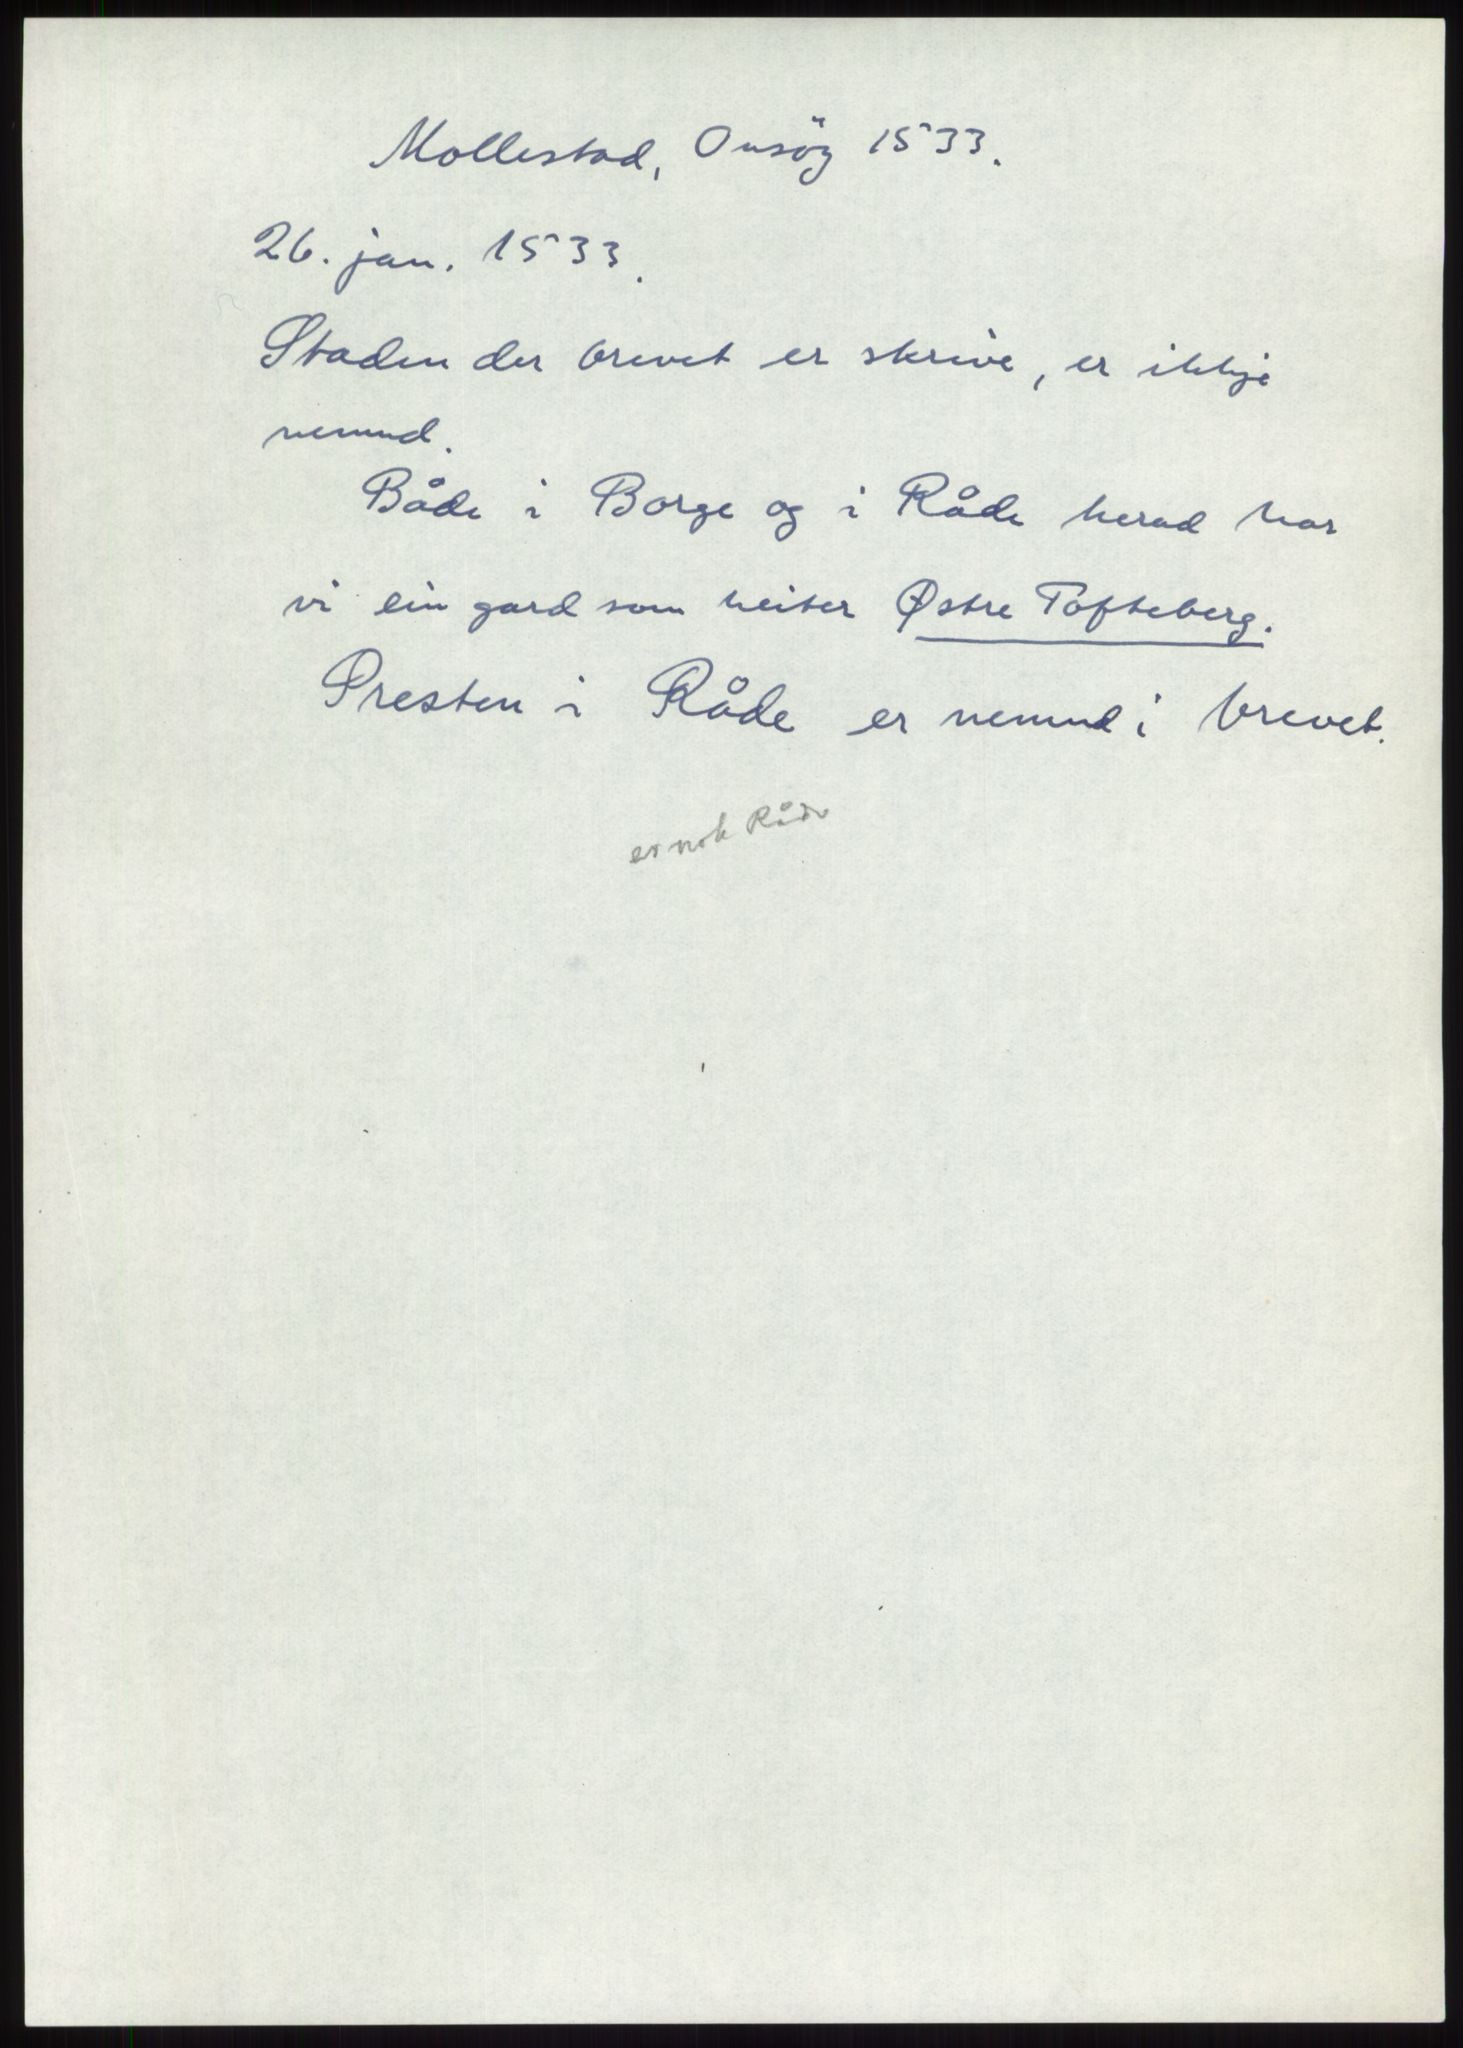 Mollestad, Onsöy 1533.
26. jan. 1533.
Staden der brevet er skrive, er ikkje
nemnd.
Både i Borge og i Råde herad har
vi ein gard som heiter Østre Tofteberg.
Presten i Råde er nemnd i brevet.
er nok Råde